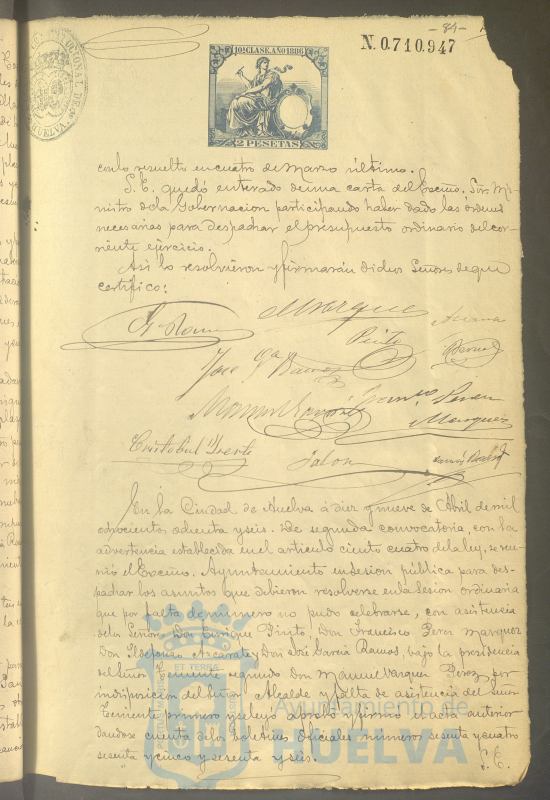 -84-
N. 0.710.947
10ª CLASE. AÑO 1886
2 PESETAS
HUELVA
con lo resuelto en cuatro de Marzo último.
S. E. quedó enterado de una carta del Excmo. Sor. Mi-
nistro de la Gobernacion participando haber dado las órdenes
necesarias para despachar el presupuesto ordinario del cor-
riente ejercicio.
Así lo resolvieron y firmarán dichos Señores de que
certifico:
Marquez
Pinto
José Gª Ramos
Perez
Marquez
Cristobal
Jalon
En la Ciudad de Huelva á diez y nueve de Abril de mil
ochocientos ochenta y seis. De segunda convocatoria, con la
advertencia establecida en el articulo ciento cuatro de la ley, se reu-
nió el Excmo. Ayuntamiento en sesion pública para des-
pachar los asuntos que debieron resolverse en la Sesion ordinaria
que por falta de número no pudo celebrarse, con asistencia
de los Señores Don Enrique Pinto, Don Francisco Perez Marquez
Don Ildefonso Azcarate y Don José Garcia Ramos, bajo la presidencia
del Señor Teniente segundo Don Manuel Vazquez Perez por
indisposicion del Señor Alcalde y falta de asistencia del Señor
Teniente primero y se leyó aprobó y firmó el acta anterior
dandose cuenta de los boletines oficiales números sesenta y cuatro
sesenta y cinco y sesenta y seis.
S. E.
ET TERRAE
Ayuntamiento de
HUELVA